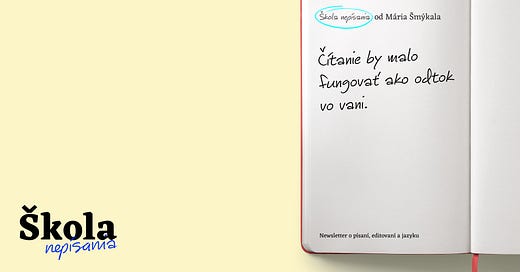 Škola nepísania od Mária Šmýkala
Čítanie by malo
fungovať ako odtok
vo vani.
Newsletter o písaní, editovaní a jazyku
Škola
nepísania